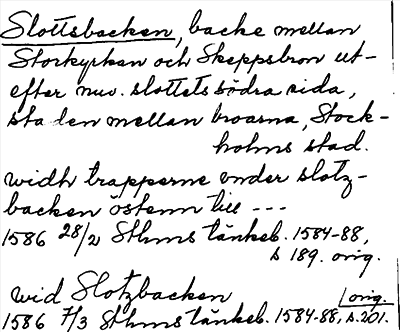 Slottsbacken, backe mellan
Storkyrkan och Skeppsbron ut-
efter nuv. slottets södra sida,
sta den mellan broarna, Stock-
holms stad.
widh trapperne vnder slotz-
backen östenn till ---
1586 28/2 Sthms tänkeb. 1584-88,
s 189. orig.
wid Slotzbacken
1586 7/3 Sthms tänkeb. 1584-88, s. 201. orig.